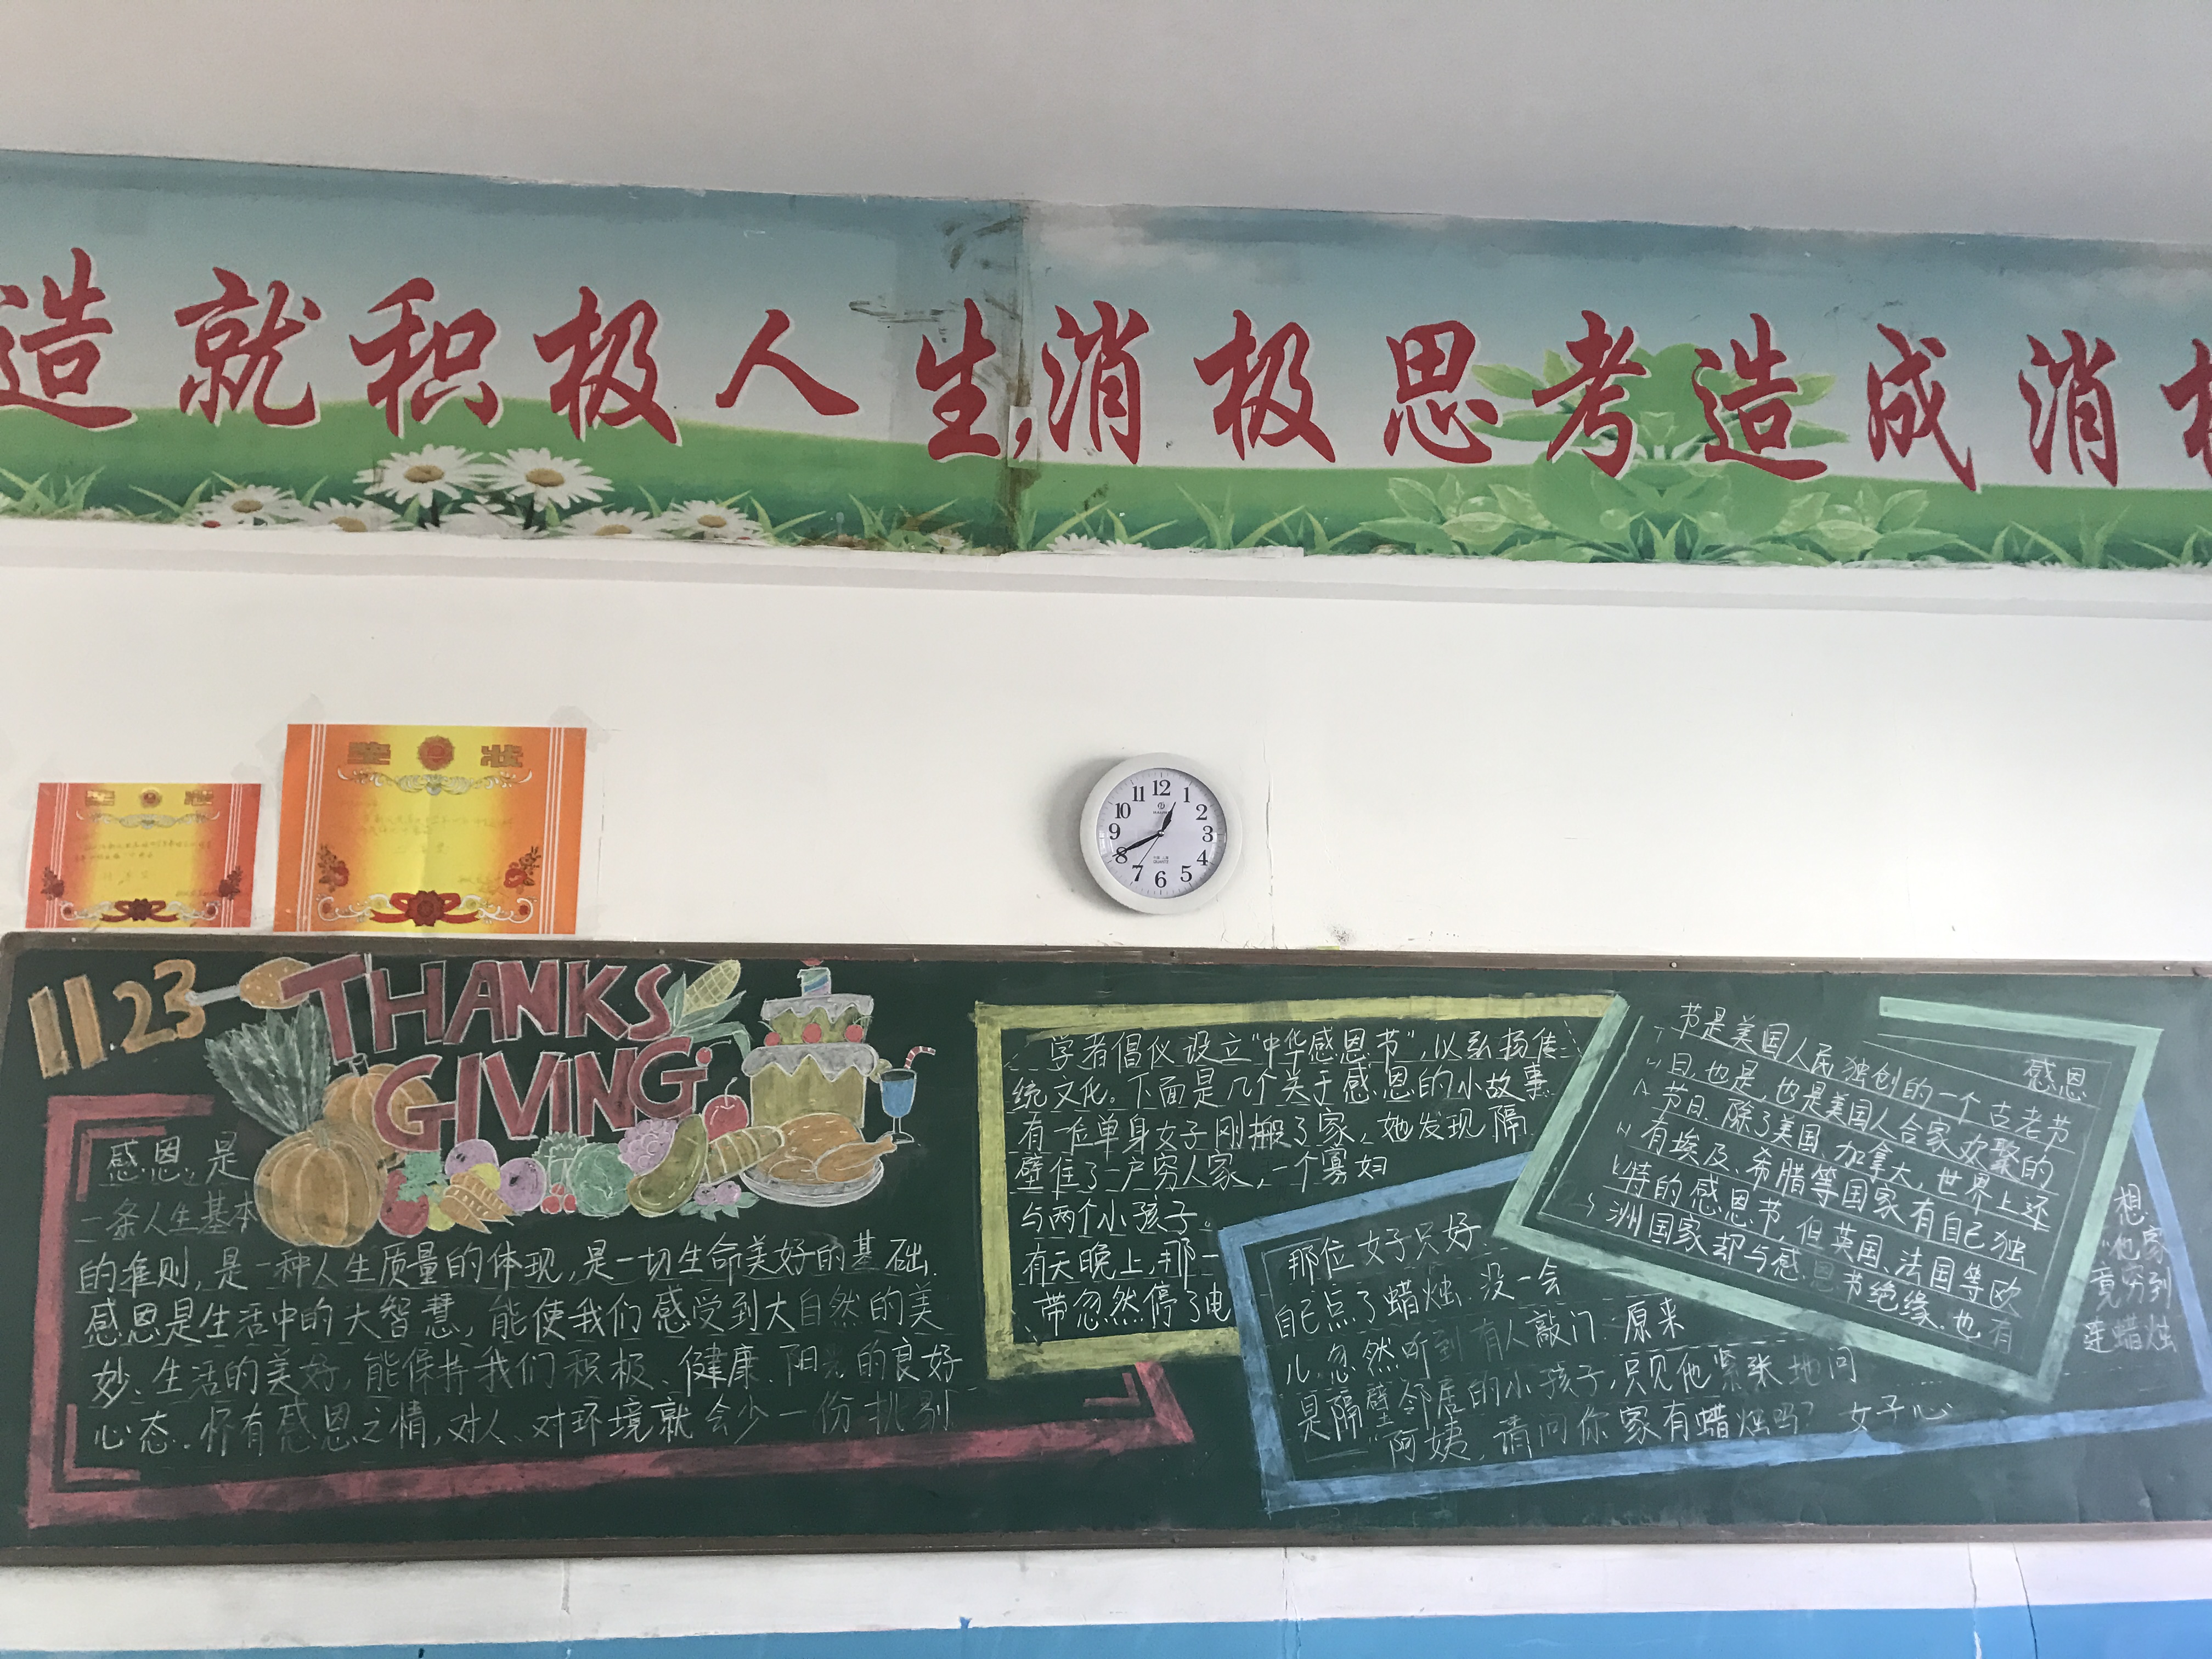 造就积极人生,消极思考造成消极
奖状
奖状
12
1
2
3
4
5
6
7
8
9
10
11
QUARTZ
11.23
THANKS
GIVING
感恩,是
一条人生基本
的准则,是一种人生质量的体现,是一切生命美好的基础.
感恩是生活中的大智慧,能使我们感受到大自然的美
妙、生活的美好,能保持我们积极、健康、阳光的良好
心态.怀有感恩之情,对人、对环境就会少一份挑剔
学者倡仪设立“中华感恩节”,以弘扬传
统文化。下面是几个关于感恩的小故事
有一位单身女子刚搬了家,她发现隔
壁住了一户穷人家,一个寡妇
与两个小孩子。
有天晚上,那一
带忽然停了电
那位女子只好
自己点了蜡烛.没一会
儿,忽然听到有人敲门.原来
是隔壁邻居的小孩子,只见他紧张地问
“阿姨,请问你家有蜡烛吗?”女子心
想
“他家
竟穷到
连蜡烛
感恩
节是美国人民独创的一个古老节
日,也是,也是美国人合家欢聚的
节日.除了美国、加拿大,世界上还
有埃及、希腊等国家有自己独
特的感恩节,但英国、法国等欧
洲国家却与感恩节绝缘.也有